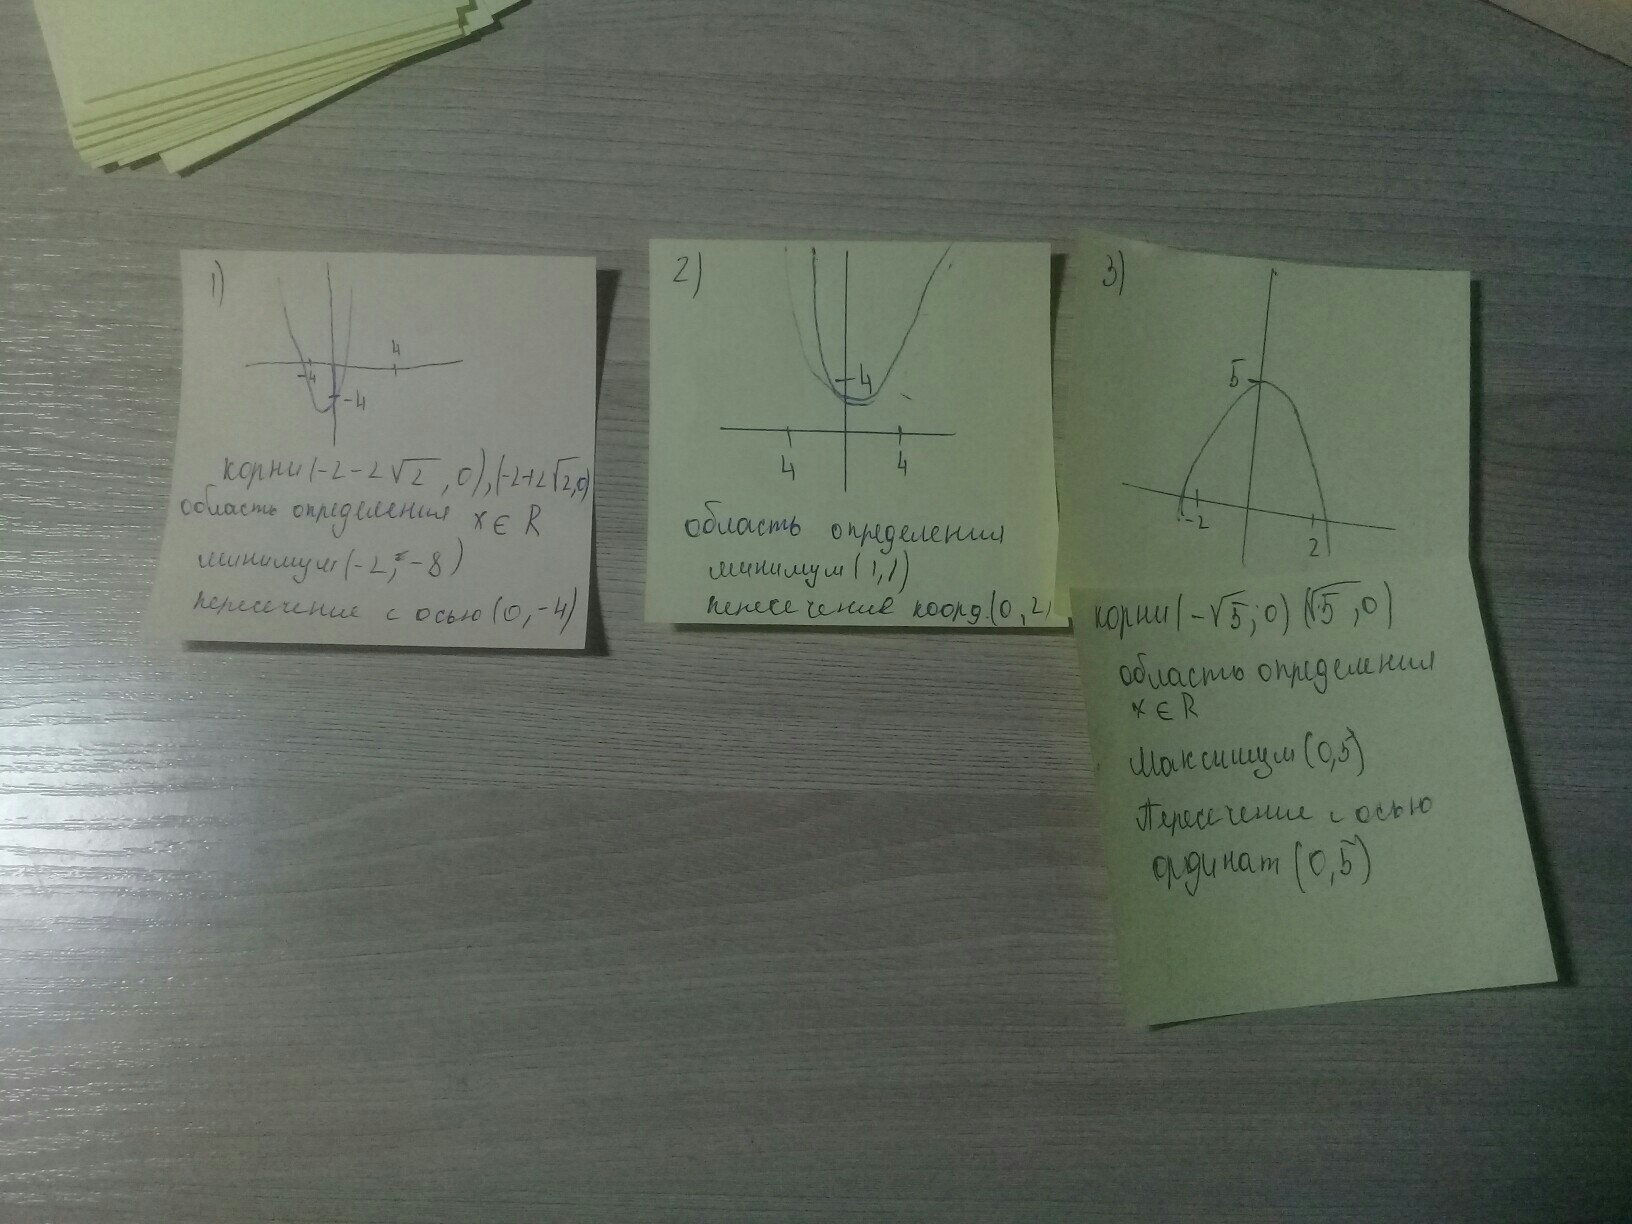 1)
4
-4
-4
корни (-2-2√2, 0), (-2+2√2, 0)
область определения x ∈ R
минимум (-2; -8)
пересечение с осью (0, -4)
2)
4
4
4
область определения
минимум (1,1)
пересечение коорд. (0, 2)
3)
5
-2
2
корни (-√5; 0) (√5, 0)
область определения
x ∈ R
Максимум (0,5)
Пересечение с осью
ординат (0,5)